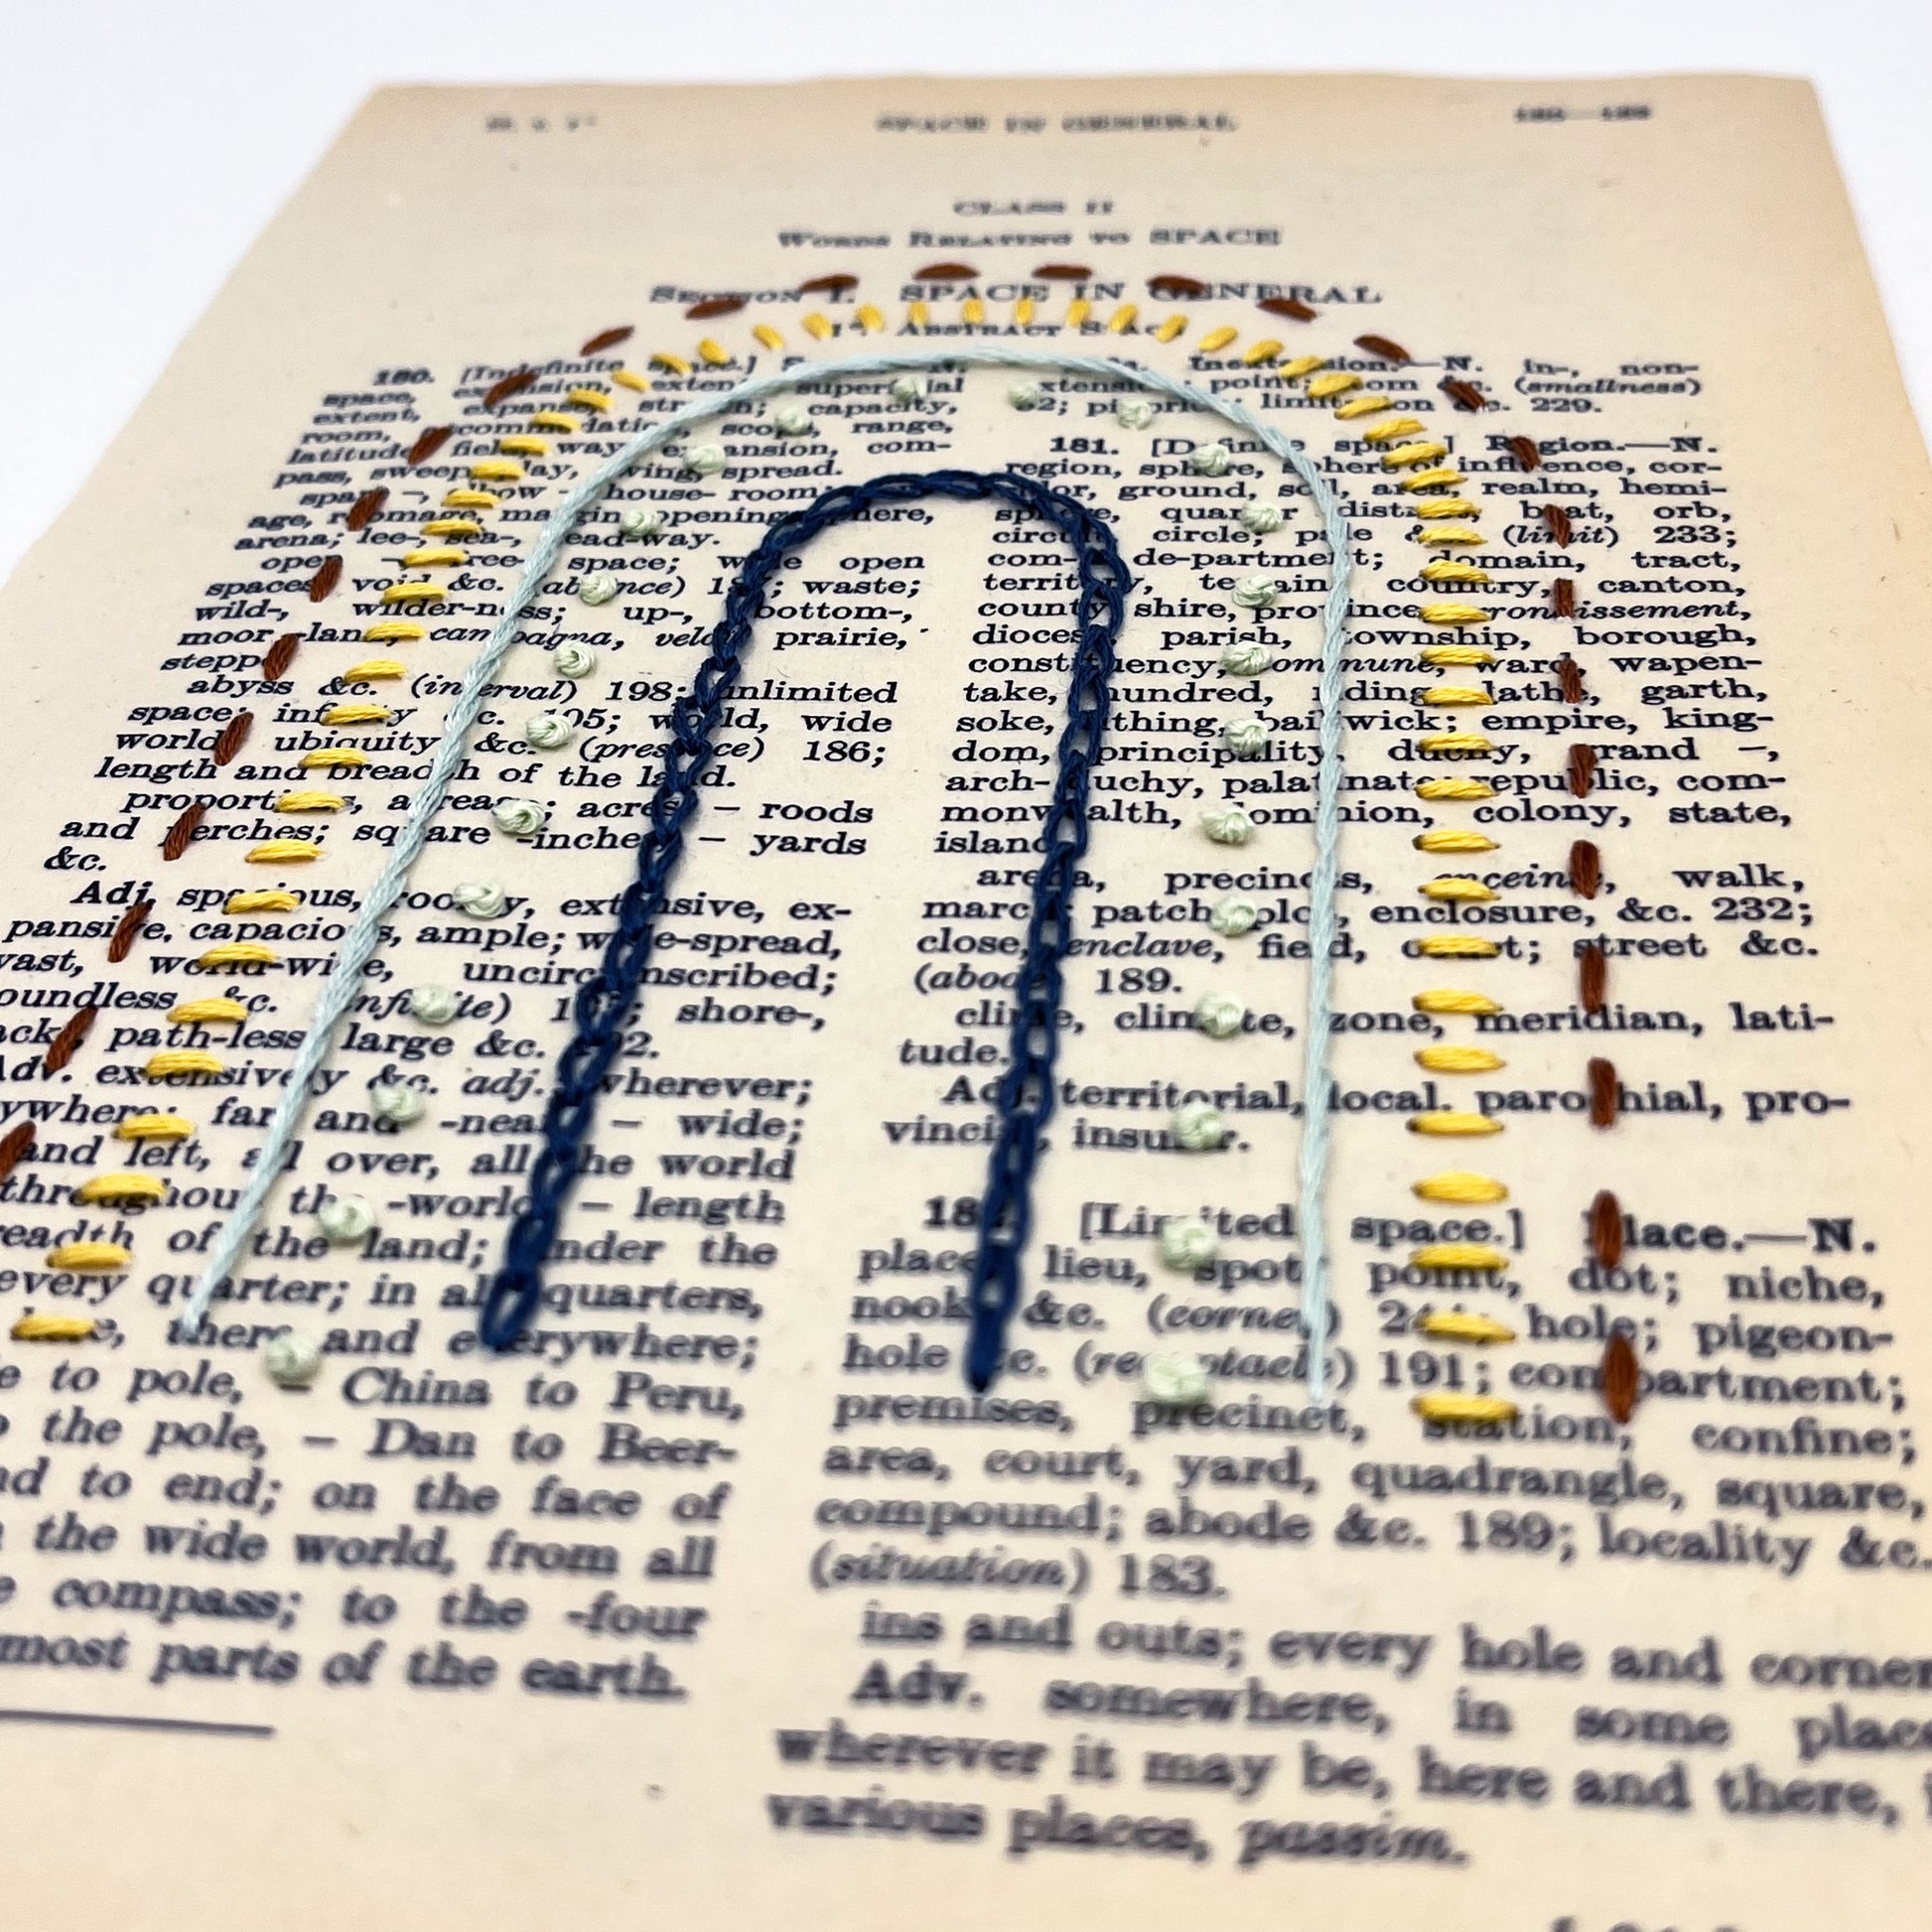 SPACE IN GENERAL
CLASS II
WORDS RELATING TO SPACE
SECTION I. SPACE IN GENERAL
ABSTRACT SPACE
180. [Indefinite space.]
space, extension, extent, superficial
extent, expanse, capacity,
room, scope, range,
latitude, field, way, expansion, com-
pass, sweep, swing, spread.
house- room;
age, opening, sphere,
arena; lee-, sea-, head-way.
open free space; wide open
spaces, void &c. (absence) 187; waste;
wild-, wilder-ness; up-, bottom-,
moor -land, campagna, veldt, prairie,
steppe
abyss &c. (interval) 198; unlimited
space; infinity &c. 105; world, wide
world, ubiquity &c. (presence) 186;
length and breadth of the land.
proportions, acreage; acres, – roods
and perches; square -inches, – yards
&c.
Adj. spacious, roomy, extensive, ex-
pansive, capacious, ample; wide-spread,
vast, world-wide, uncircumscribed;
boundless &c. (infinite) 105; shore-,
path-less large &c.
Adv. extensively &c. adj. wherever;
far and -near, – wide;
and left, all over, all the world
throughout the -world, – length
of the land; under the
every quarter; in all quarters,
there and everywhere;
to pole, – China to Peru,
the pole, – Dan to Beer-
to end; on the face of
the wide world, from all
compass; to the -four
most parts of the earth.
Inextension.—N. in-, non-
extension; point; atom &c. (smallness)
limitation &c. 229.
181. [Definite space.] Region.—N.
region, sphere, sphere of influence, cor-
ridor, ground, soil, area, realm, hemi-
sphere, quarter, district, beat, orb,
circuit, circle; pale &c. (limit) 233;
com- de-partment; domain, tract,
territory, terrain, country, canton,
county, shire, province, arrondissement,
diocese, parish, township, borough,
constituency, commune, ward, wapen-
take, hundred, riding, lathe, garth,
soke, tithing, bailiwick; empire, king-
dom, principality, duchy, grand –,
arch- duchy, palatinate; republic, com-
monwealth, dominion, colony, state,
island
arena, precincts, enceinte, walk,
march; patch, plot, enclosure, &c. 232;
close, enclave, field, court; street &c.
(abode) 189.
clime, climate, zone, meridian, lati-
tude.
Adj. territorial, local. parochial, pro-
vincial, insular.
182. [Limited space.] Place.—N.
place, lieu, spot, point, dot; niche,
nook &c. (corner) hole; pigeon-
hole &c. (receptacle) 191; compartment;
premises, precinct, station, confine;
area, court, yard, quadrangle, square,
compound; abode &c. 189; locality &c.
(situation) 183.
ins and outs; every hole and corner
Adv. somewhere, in some place
wherever it may be, here and there,
various places, passim.